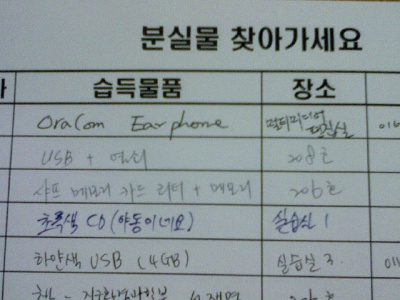 분실물 찾아가세요
습득물품 장소
OraCom Earphone 멀티미디어 편집실 016
USB + 열쇠 208호
샤프 메모리 카드 리더 + 메모리 206호
초록색 CD (야동이네요) 실습실 1
하얀색 USB (4GB) 실습실 3. 011